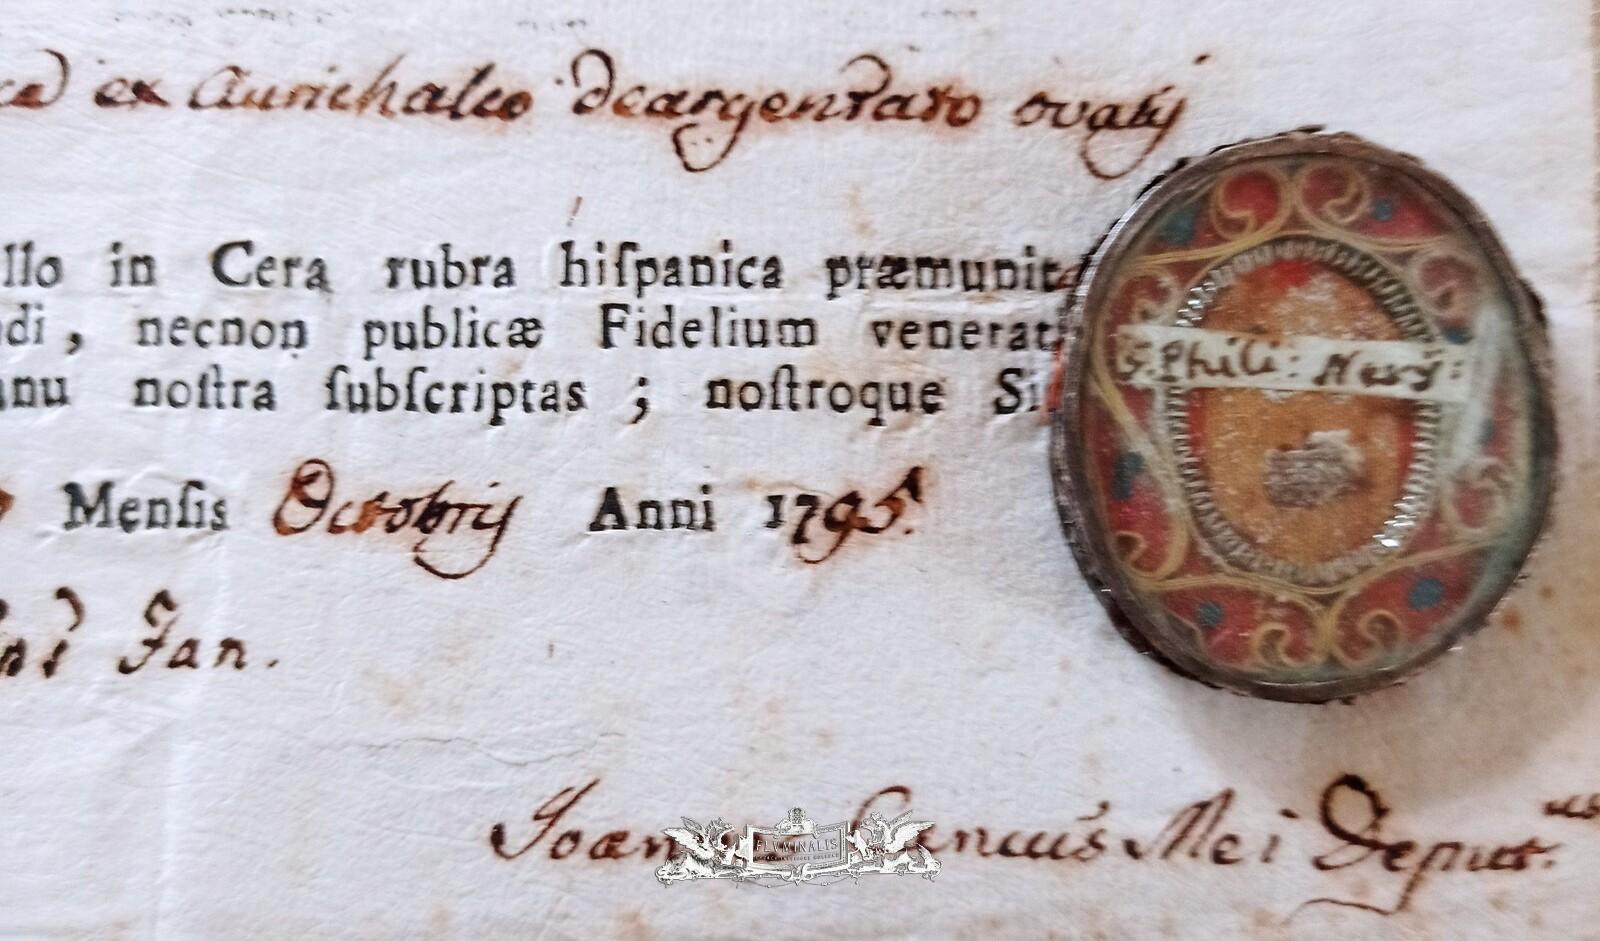 ex Aurichalco deargentato ovatij
llo in Cera rubra hiſpanica præmunit
di, necnon publicæ Fidelium venerat
nu noſtra ſubſcriptas ; noſtroque Si
Menſis Octobris Anni 1795.
Jan.
S. Phili: Nerij:
Mei Deput.us
FLVMINALIS